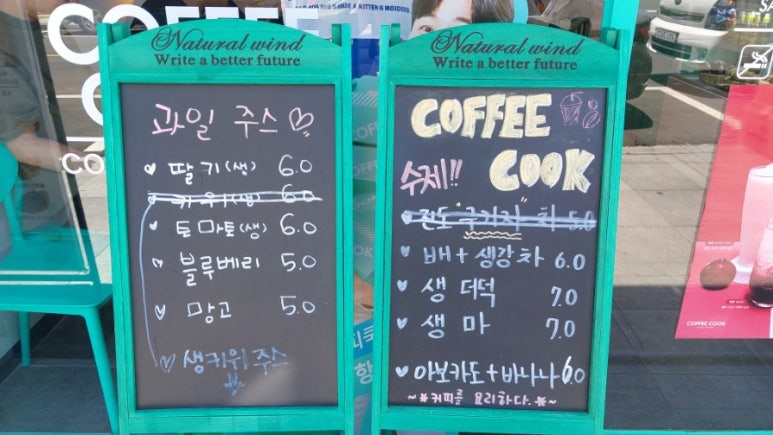 COFFEE
Natural wind
Write a better future
과일 주스
딸기(생) 6.0
키위(생) 6.0
토마토(생) 6.0
블루베리 5.0
망고 5.0
생키위주스
Natural wind
Write a better future
COFFEE
COOK
수제!!
차 5.0
배+생강차 6.0
생 더덕 7.0
생 마 7.0
아보카도+바나나 6.0
~*커피를 요리하다.*~
COFFEE COOK